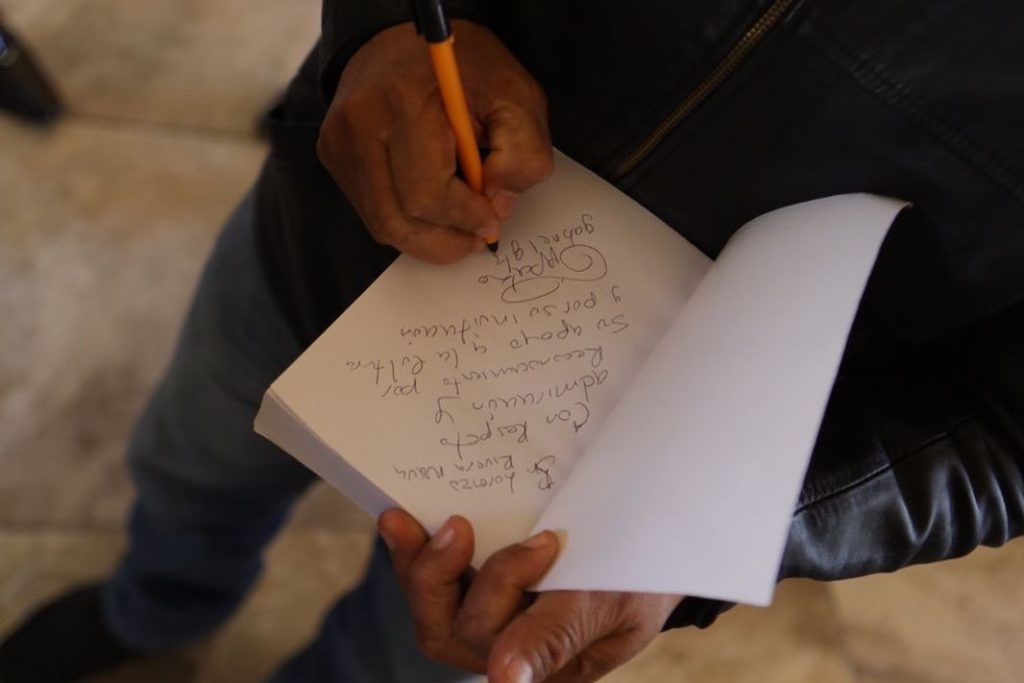 Sr. Lorenzo
Rivera Nava
Con Respeto
admiración y
Reconocimiento por
Su apoyo a la Cultura
y por su invitación
gabriel